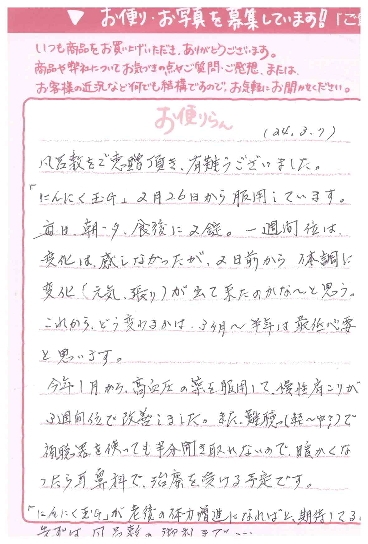 ▼ お便り・お写真を募集しています!!「ご
いつも商品をお買い上げいただき、ありがとうございます。
商品や弊社についてお気づきの点やご質問・ご感想、または、
お客様の近況など何でも結構ですので、お気軽にお聞かせください。
お便りらん
(24.3.7)
風呂敷をご恵贈頂き、有難うございました。
「にんにく玉ム」2月26日から服用しています。
毎日、朝・夕、食後に2錠。一週間位は、
変化は感じなかったが、2日前から体調に
変化(元気、張り)が出て来たのかな〜と思う。
これから、どう変わるかは、3ヶ月〜半年は最低必要
と思います。
今年1月から、高血圧の薬を服用して、慢性肩こりが
3週間位で改善しました。また、難聴(軽〜中?)で
補聴器を使っても半分聞き取れないので、暖かくな
ったら耳鼻科で、治療を受ける予定です。
「にんにく玉ム」が老後の体力増進になればと、期待してる。
先ずは、風呂敷の御礼まで…